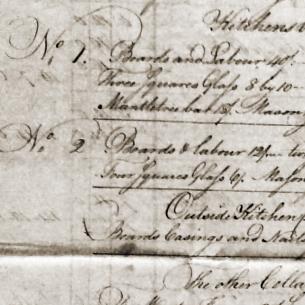 Kitchens
No. 1. Boards and Labour 40/
Three Squares Glass 8 by 10
Mantletree bar
No. 2 Boards & labour 12/
Four Squares Glass 6/. Mason
Outside Kitchen
Boards Casings and Nails
The other